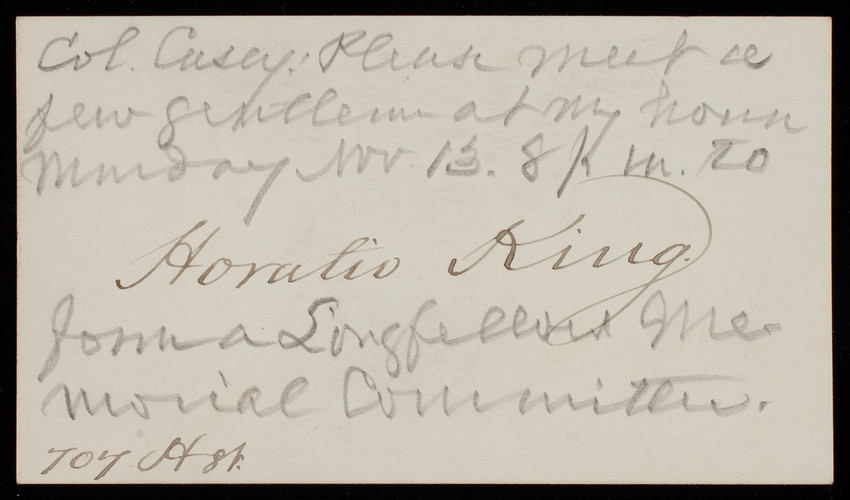 Col. Casey: Please meet a
few gentlemen at my house
Monday Nov 13. 8 p m. to
Horatio King.
form a Longfellow Me-
morial Committee.
707 H st.